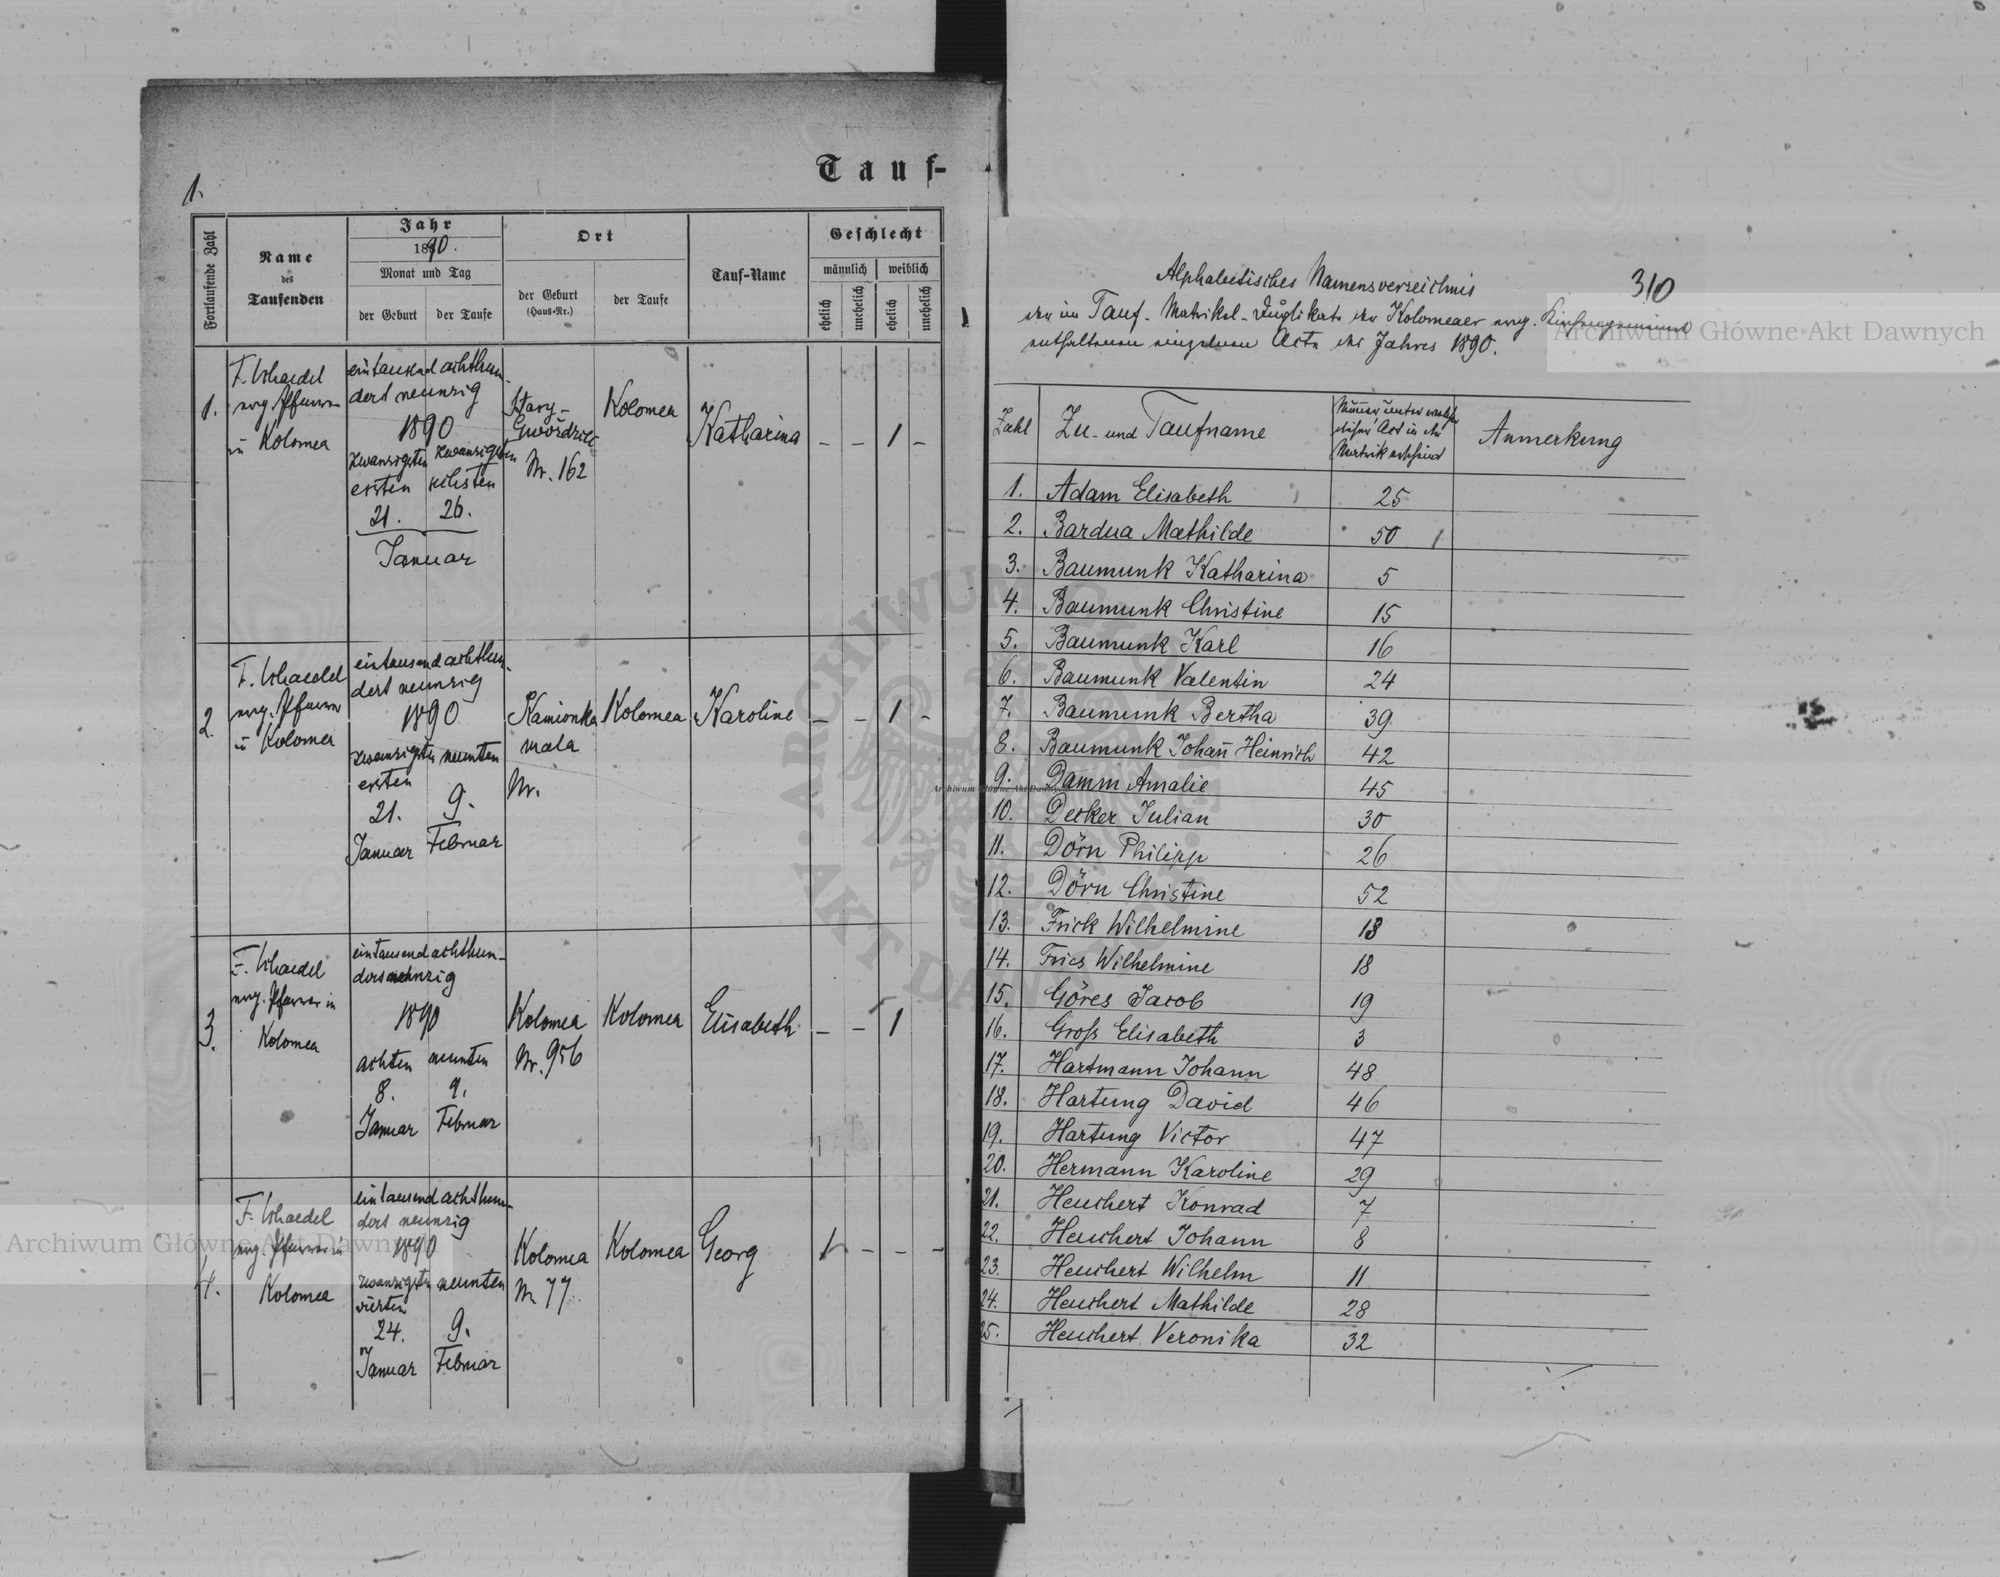 Tauf-
1.
Fortlaufende Zahl
Name
des
Taufenden
Jahr
1890.
Monat und Tag
der Geburt
der Taufe
Ort
der Geburt
(Haus-Nr.)
der Taufe
Tauf-Name
Geschlecht
männlich
weiblich
ehelich
unehelich
ehelich
unehelich
1.
evg. Pfarrer
in Kolomea
eintausend achthun-
dert neunzig
1890
zwanzigsten
ersten
21.
zwanzigsten
sechsten
26.
Januar
Nr. 162
Kolomea
Katharina
- - 1 -
2.
evg. Pfarrer
in Kolomea
eintausend achthun-
dert neunzig
1890
zwanzigsten
ersten
21.
Januar
neunten
9.
Februar
Kamionka
mala
Nr.
Kolomea
Karoline
- - 1 -
3.
evg. Pfarrer in
Kolomea
eintausend achthun-
1890
achten
8.
Januar
neunten
9.
Februar
Kolomea
Nr. 956
Kolomea
Elisabeth
- - 1
4.
evg. Pfarrer in
Kolomea
eintausend achthun-
dert neunzig
1890
zwanzigsten
vierten
24.
Januar
neunten
9.
Februar
Kolomea
77
Kolomea
Georg
1 - - -
310
Alphabetisches Namensverzeichnis
der im Tauf-Matrikel-Duplikate der Kolomeaer evg. Kirchengemeinde
enthaltenen einzelnen Acte des Jahres 1890.
Zahl
Zu- und Taufname
Anmerkung
1. Adam Elisabeth 25
2. Bardua Mathilde 50
3. Baumunk Katharina 5
4. Baumunk Christine 15
5. Baumunk Karl 16
6. Baumunk Valentin 24
7. Baumunk Bertha 39
8. Baumunk Johañ Heinrich 42
9. Damm Amalie 45
10. Decker Julian 30
11. Dörn Philipp 26
12. Dörn Christine 52
13. Frick Wilhelmine 13
14. Fries Wilhelmine 18
15. Göres Jacob 19
16. Groß Elisabeth 3
17. Hartmann Johann 48
18. Hartung David 46
19. Hartung Victor 47
20. Hermann Karoline 29
21. Heuchert Konrad 7
22. Heuchert Johann 8
23. Heuchert Wilhelm 11
24. Heuchert Mathilde 28
25. Heuchert Veronika 32
Archiwum Główne Akt Dawnych
Archiwum Główne Akt Dawnych
Archiwum Główne Akt Dawnych